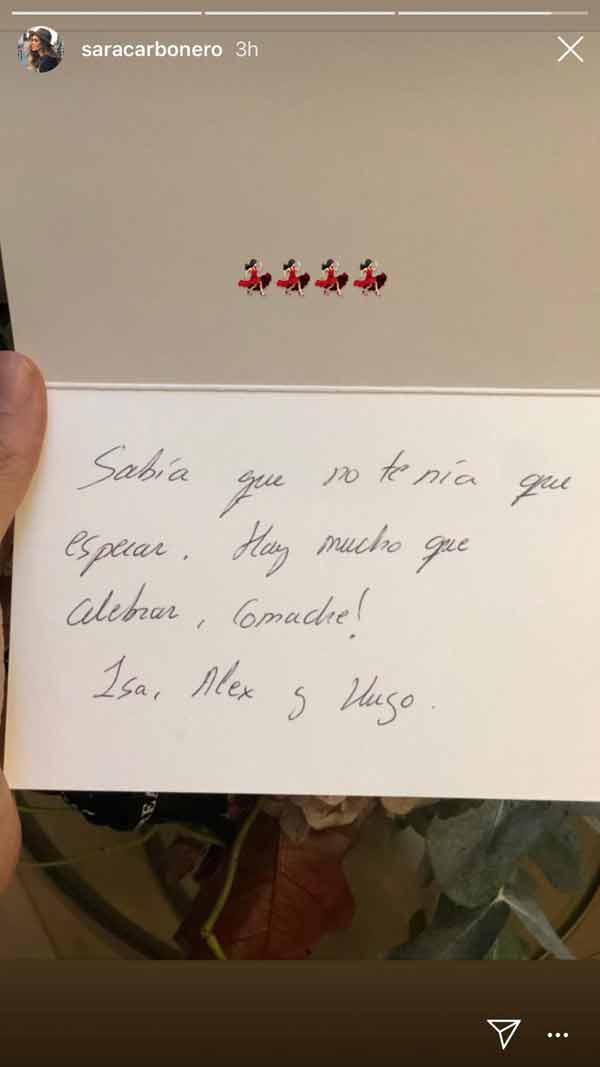 saracarbonero 3h
Sabía que no tenía que
esperar. Hay mucho que
celebrar, Comadre!
Isa, Alex y Hugo.